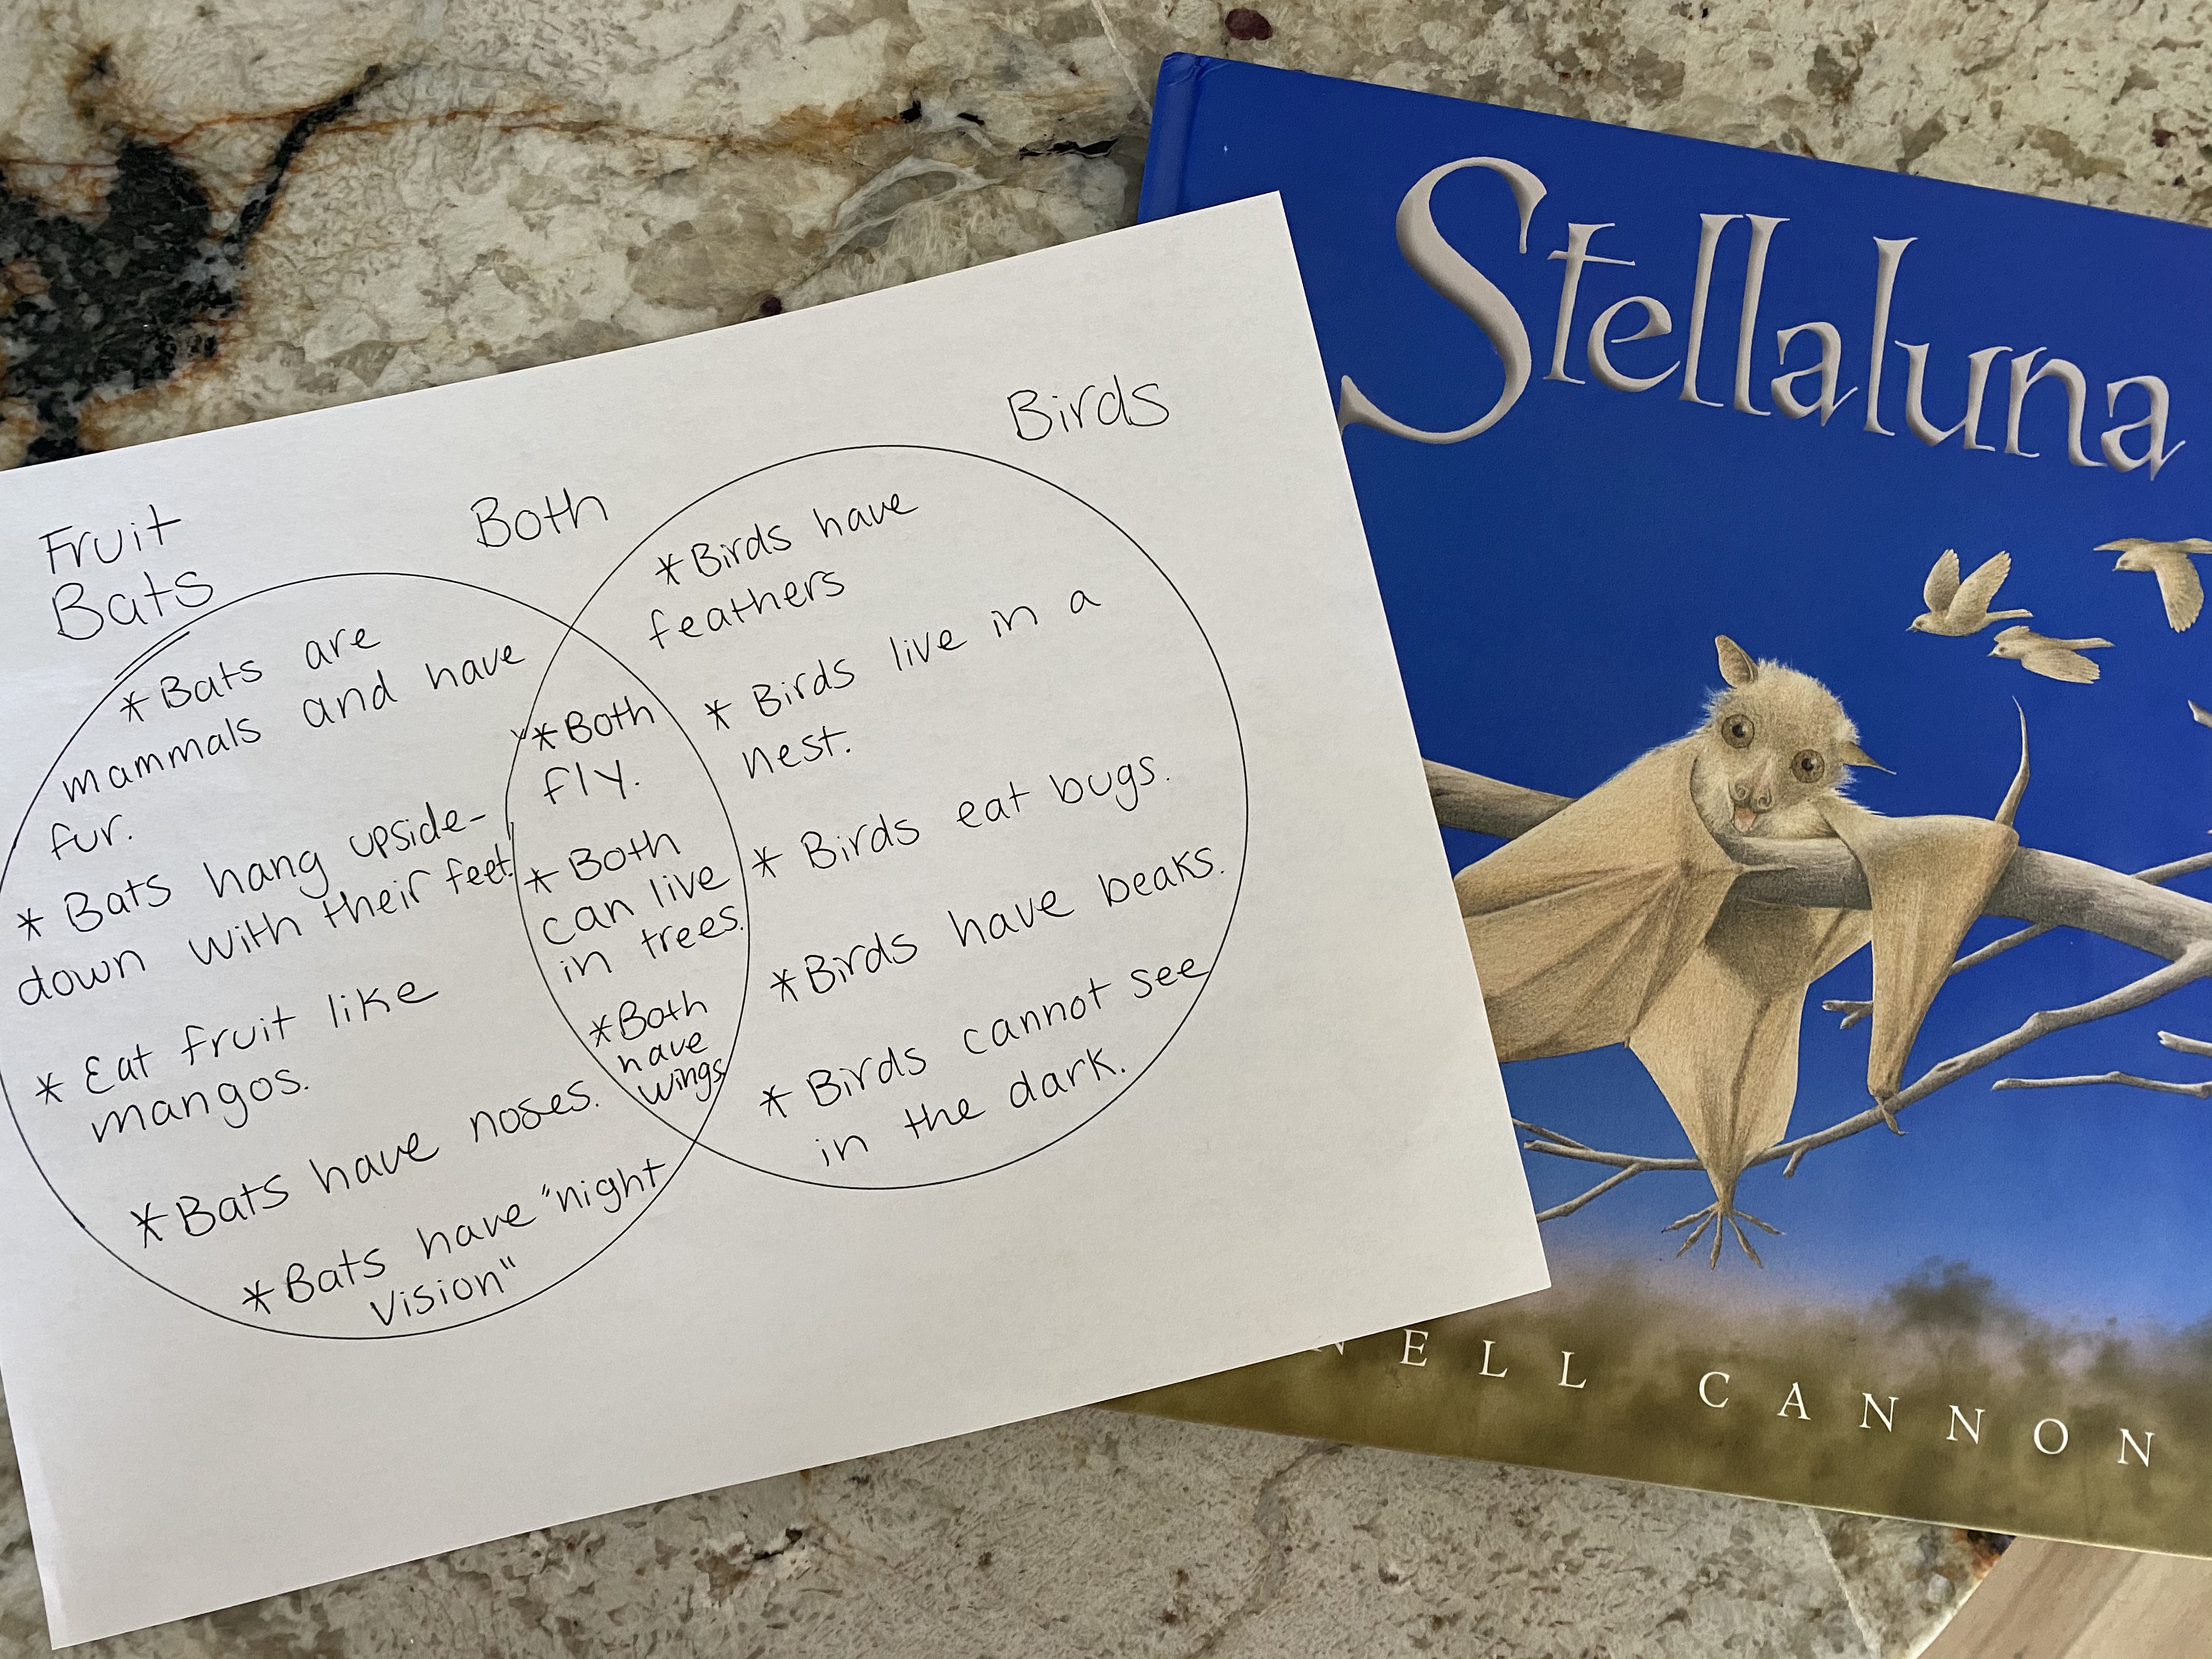 Fruit
Bats
* Bats are
mammals and have
fur.
* Bats hang upside-
down with their feet.
* Eat fruit like
mangos.
* Bats have noses.
* Bats have "night
vision"
Both
* Both
fly.
* Both
can live
in trees.
* Both
have
wings
Birds
* Birds have
feathers
* Birds live in a
nest.
* Birds eat bugs.
* Birds have beaks.
* Birds cannot see
in the dark.
Stellaluna
NELL CANNON